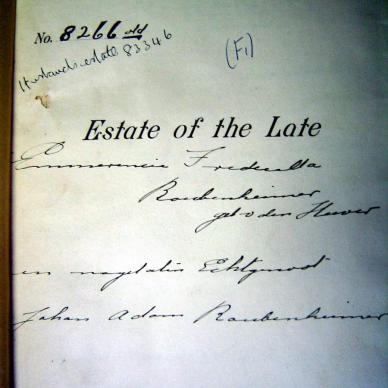 No. 8266 old
Husband's estate 83346
(F1)
Estate of the Late
Emmerencia Frederika
Raubenheimer
geb v den Heever
en nagelatin Echtgenoot
Johan Adam Raubenheimer